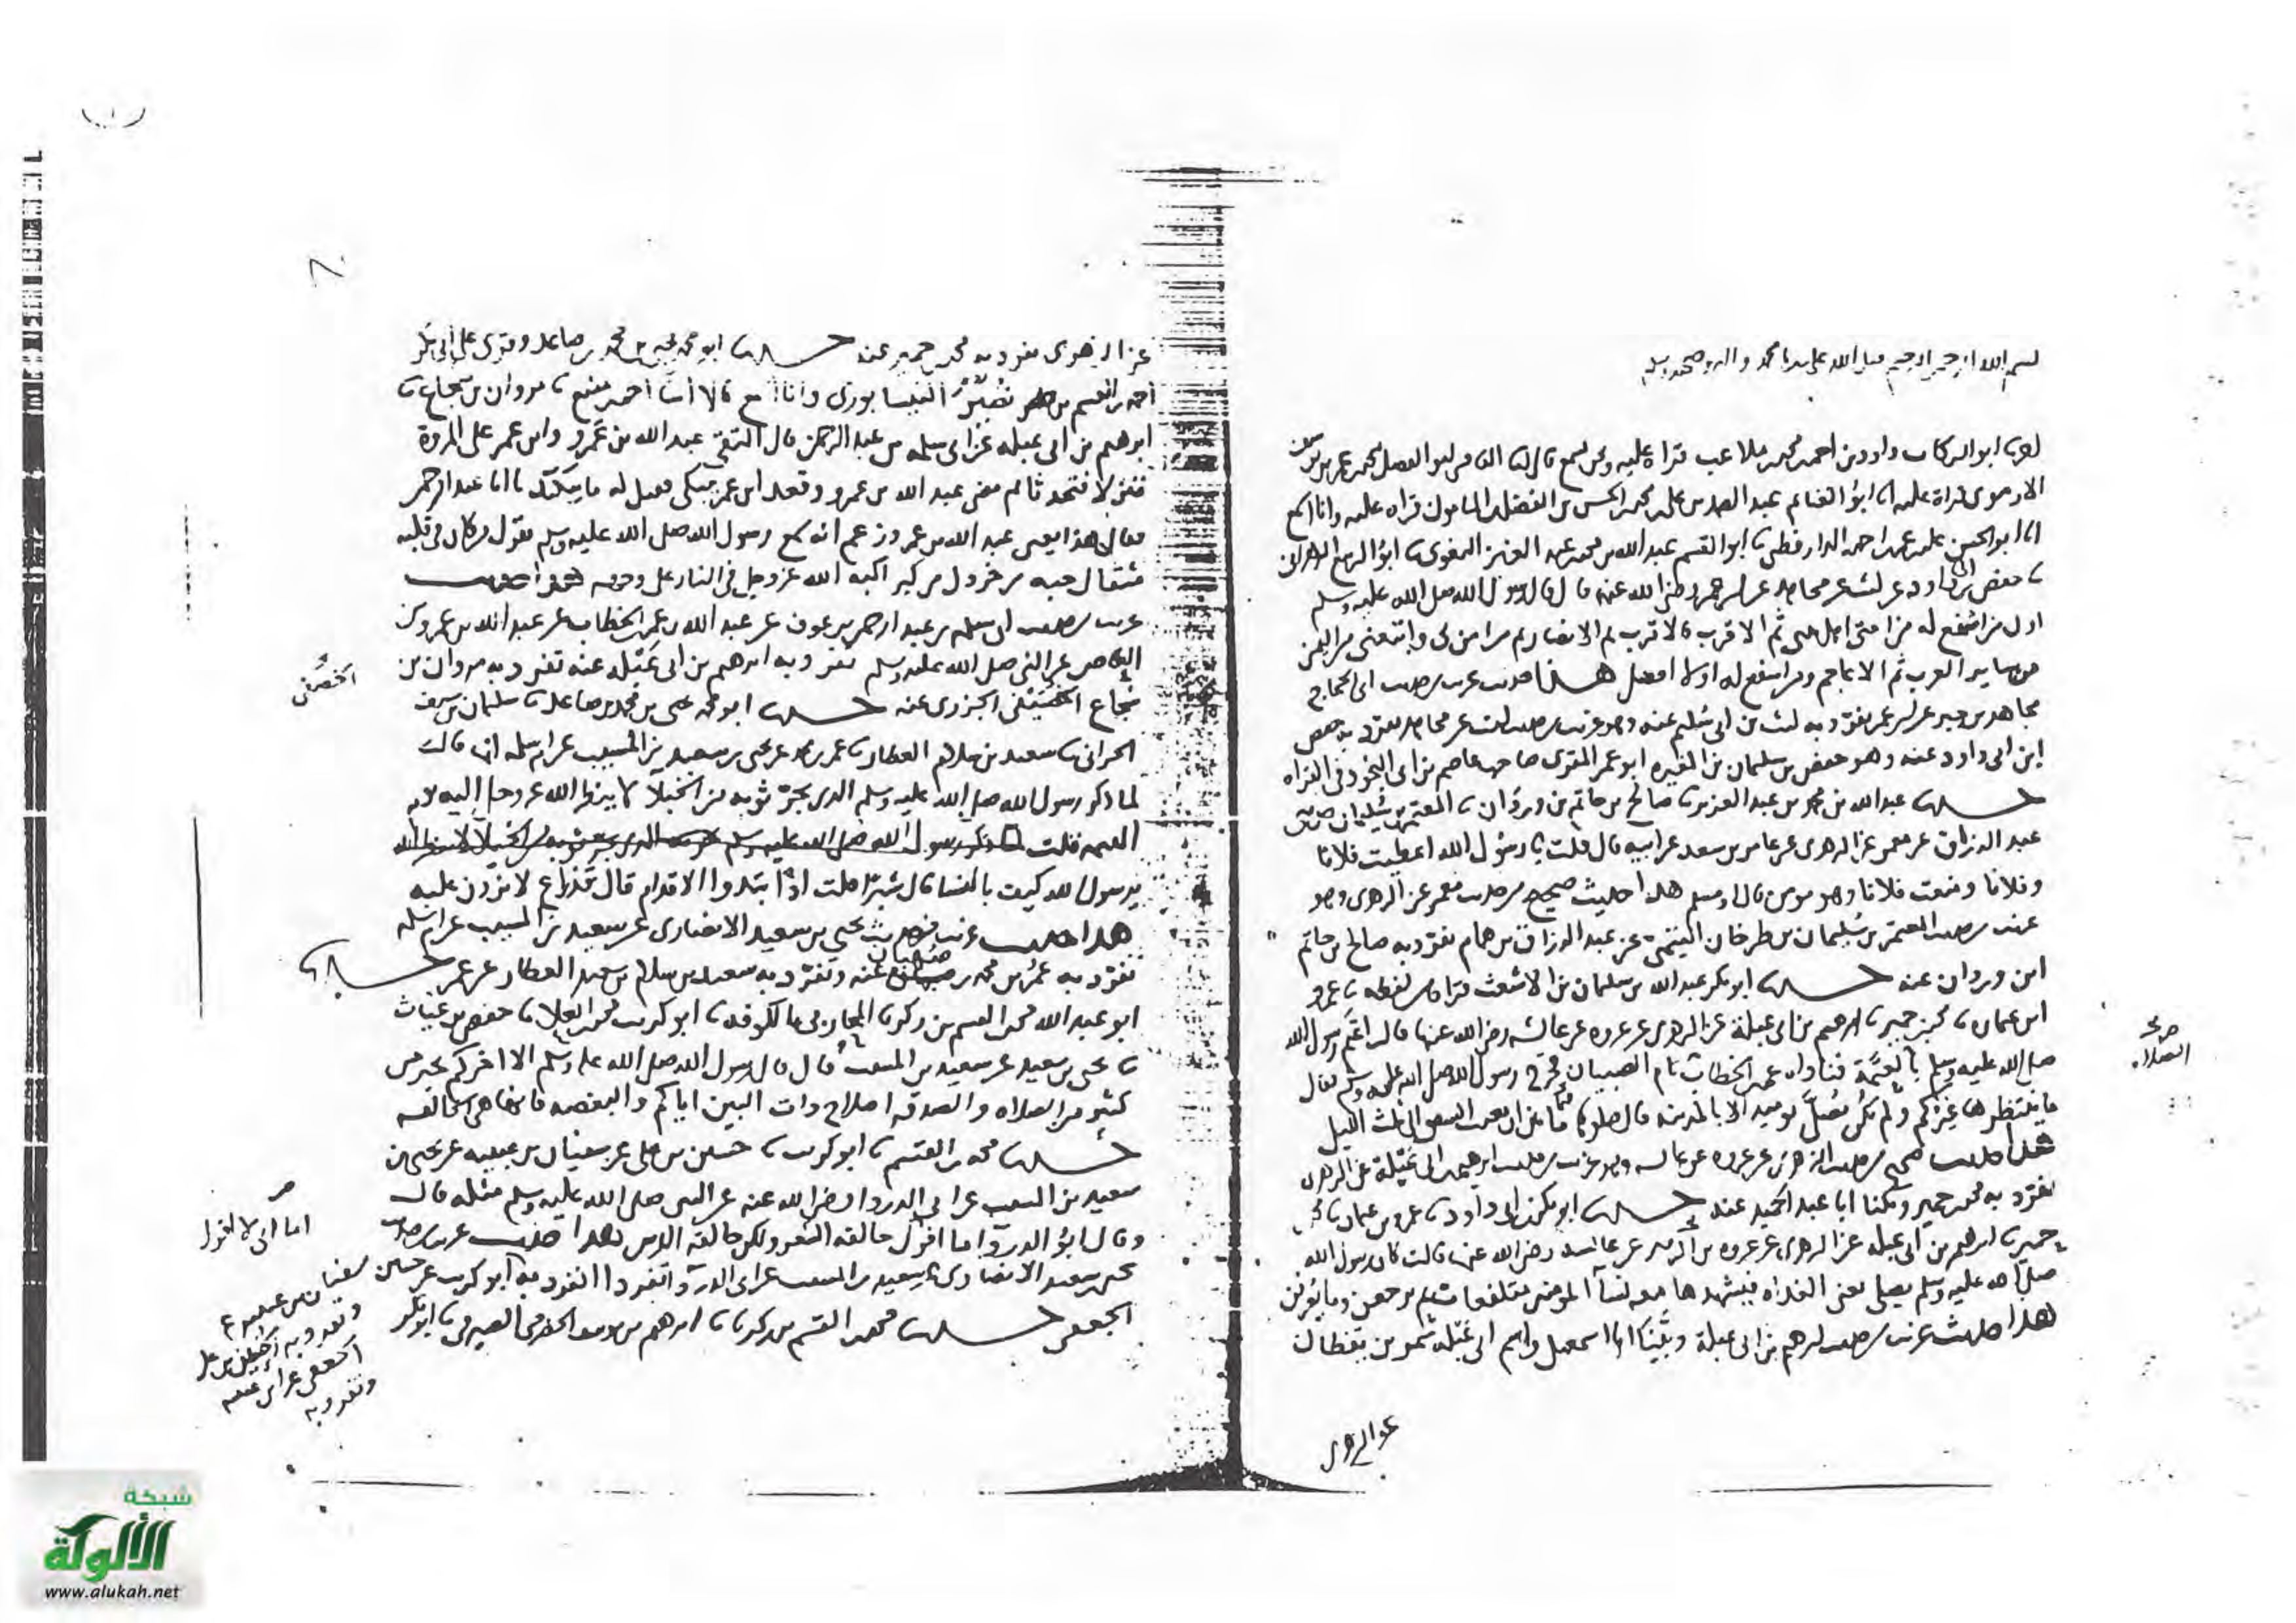 بسم الله الرحمن الرحيم صلى الله على سيدنا محمد واله وصحبه وسلم
ابو البركات داود بن احمد بن محمد بن ملاعب قراة عليه ونحن نسمع قال انا القاضى ابو الفضل محمد بن عمر بن يوسف
الارموى قراة عليه انا ابو الغنائم عبد الصمد بن على بن محمد بن الحسن بن الفضل بن المامون قراه عليه وانا اسمع
انا ابو الحسن على بن عمر بن احمد الدارقطنى نا ابو القسم عبد الله بن محمد بن عبد العزيز البغوى نا ابو الربيع الزهرانى
نا حفص بن ابى داود عن ليث عن مجاهد عن ابن عمر رضى الله عنه قال قال رسول الله صلى الله عليه وسلم
اول من اشفع له من امتى اهل بيتى ثم الاقرب فالاقرب ثم الانصار ثم من امن بى واتبعنى من اليمن
ثم من ساير العرب ثم الاعاجم ومن اشفع له اولا افضل هذا حديث غريب من حديث ابى الحجاج
مجاهد بن جبر عن ابن عمر تفرد به ليث بن ابى سليم عنه وهو غريب من حديث ليث عن مجاهد تفرد به حفص
ابن ابى داود عنه وهو حفص بن سليمان بن المغيره ابو عمر المقرى صاحب عاصم بن ابى النجود فى القراه
حدثنا عبد الله بن محمد بن عبد العزيز نا صالح بن حاتم بن وردان نا المعتمر بن سليمان
عبد الرزاق عن معمر عن الزهرى عن عامر بن سعد عن ابيه قال قلت يا رسول الله اعطيت فلانا
وفلانا ومنعت فلانا وهو مومن قال او مسلم هذا حديث صحيح من حديث معمر عن الزهرى وهو
غريب من حديث المعتمر بن سليمان بن طرخان التيمى عن عبد الرزاق بن همام تفرد به صالح بن حاتم
ابن وردان عنه حدثنا ابو بكر عبد الله بن سليمان بن الاشعث قراة من لفظه نا عمرو
ابن عثمان نا محمد بن حمير نا ابرهيم بن ابى عبلة عن الزهرى عن عروه عن عائشه رضى الله عنها قالت اعتم رسول الله
صلى الله عليه وسلم بالعتمة فناداه عمر بن الخطاب نام الصبيان فخرج رسول الله صلى الله عليه وسلم فقال
ما ينتظرها غيركم ولم تكن تصل يوميذ الا بالمدينه قال صلوها فيما بين ان يغيب الشفق الى ثلث الليل
هذا حديث صحيح من حديث الزهرى عن عروه عن عائشه وهو غريب من حديث ابرهيم بن ابى عبلة عن الزهرى
تفرد به محمد بن حمير ويكنا ابا عبد الحميد عنه حدثنا ابو بكر بن ابى داود نا عمرو بن عثمان نا محمد بن
حمير نا ابرهيم بن ابى عبله عن الزهرى عن عروه بن الزبير عن عائشه رضى الله عنها قالت كان رسول الله
صلى الله عليه وسلم يصلى يعنى الغداه فيشهدها معه نسآ المومنين متلفعات ثم يرجعن وما يعرفن
هذا حديث غريب من حديث ابرهيم بن ابى عبلة ويكنا ابا اسمعيل واسم ابى عبله شمر بن يقظان
عن الزهرى
عن الزهرى تفرد به محمد بن حمير عنه حدثنا ابو محمد يحيى بن محمد بن صاعد وقرى على ابى بكر
احمد بن القسم بن نصر النيسابورى وانا اسمع قالا نا احمد بن منيع نا مروان بن شجاع نا
ابرهيم بن ابى عبله عن ابى سلمه بن عبد الرحمن قال التقى عبد الله بن عمرو وابن عمر على المروة
فنزلا فتحدثا ثم مضى عبد الله بن عمرو وقعد ابن عمر يبكى فقيل له ما يبكيك يا ابا عبد الرحمن
فقال هذا يعنى عبد الله بن عمرو زعم انه سمع رسول الله صلى الله عليه وسلم يقول من كان فى قلبه
مثقال حبه من خردل من كبر اكبه الله عز وجل فى النار على وجهه هذا حديث
غريب من حديث ابى سلمه بن عبد الرحمن بن عوف عن عبد الله بن عمر بن الخطاب عن عبد الله بن عمرو بن
العاص عن النبى صلى الله عليه وسلم تفرد به ابرهيم بن ابى عبله عنه تفرد به مروان بن
شجاع الخصيفى الجزرى عنه حدثنا ابو محمد يحيى بن محمد بن صاعد نا سليمان بن سيف
الحرانى نا سعيد بن سلام العطار نا عمر بن محمد عن يحيى بن سعيد عن سعيد بن المسيب عن ام سلمه انها قالت
لما ذكر رسول الله صلى الله عليه وسلم الذى يجر ثوبه من الخيلا لا ينظر الله عز وجل اليه يوم
القيمه قلت
يرسول الله كيف بالنسا قال شبرا قلت اذا تبدوا الاقدام قال فذراع لا يزدن عليه
هذا حديث غريب من حديث يحيى بن سعيد الانصارى عن سعيد بن المسيب عن ام سلمه
تفرد به عمر بن محمد بن صهبان عنه وتفرد به سعيد بن سلام بن سعيد العطار عن عمر حدثنا
ابو عبد الله محمد بن القسم بن زكريا المحاربى بالكوفه نا ابو كريب محمد بن العلا نا حفص بن غياث
نا يحيى بن سعيد عن سعيد بن المسيب قال قال رسول الله صلى الله عليه وسلم الا اخبركم بخير من
كثير من الصلاه والصدقه اصلاح ذات البين اياكم والبغضه فانها هى الحالقه
حدثنا محمد بن القسم نا ابو كريب نا حسين بن على عن سفيان بن عيينه عن يحيى بن
سعيد عن سعيد بن المسيب عن ابى الدردا رضى الله عنه عن النبى صلى الله عليه وسلم مثله قال
وقال ابو الدردا اما انى لا اقول حالقه الشعر ولكن حالقه الدين هذا حديث غريب من حديث
يحيى بن سعيد الانصارى عن سعيد بن المسيب عن ابى الدردا تفرد به ابو كريب عن حسين
الجعفى حدثنا محمد بن القسم بن زكريا نا ابرهيم بن يوسف الحضرمى الصيرفى نا ابو بكر
الخصيفى
اما انى لا اقول
سفيان بن عيينه
وتفرد به الحسين بن على
الجعفى عن ابن عيينه
وتفرد به
شبكة
الألوكة
www.alukah.net